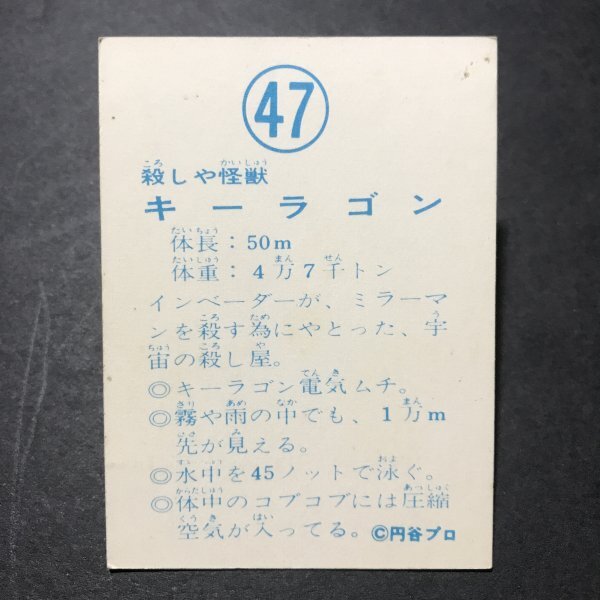 47
殺しや怪獣
キーラゴン
体長:50m
体重:4万7千トン
インベーダーが、ミラーマ
ンを殺す為にやとった、宇
宙の殺し屋。
◎キーラゴン電気ムチ。
◎霧や雨の中でも、1万m
先が見える。
◎水中を45ノットで泳ぐ。
◎体中のコブコブには圧縮
空気が入ってる。 ©円谷プロ